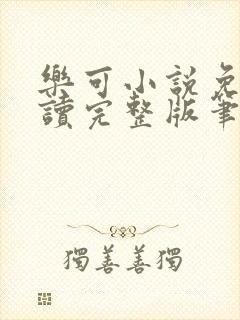 樂可小說免
讀完整版筆
獨善善獨